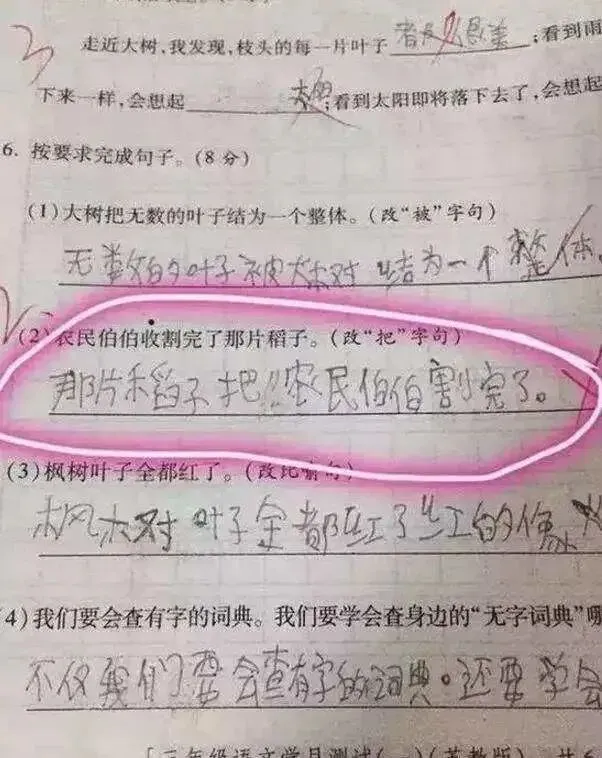 走近大树,我发现,枝头的每一片叶子 ;看到雨
下来一样,会想起 ;看到太阳即将落下去了,会想起
6. 按要求完成句子。(8分)
(1)大树把无数的叶子结为一个整体。(改“被”字句)
无数的叶子被大树结为一个整体。
(2)农民伯伯收割完了那片稻子。(改“把”字句)
那片稻子把农民伯伯割完了。
(3)枫树叶子全都红了。(改比喻句)
枫树叶子全都红了红的像火
4)我们要会查有字的词典。我们要学会查身边的“无字词典”
不仅我们要会查有字的词典。还要学会